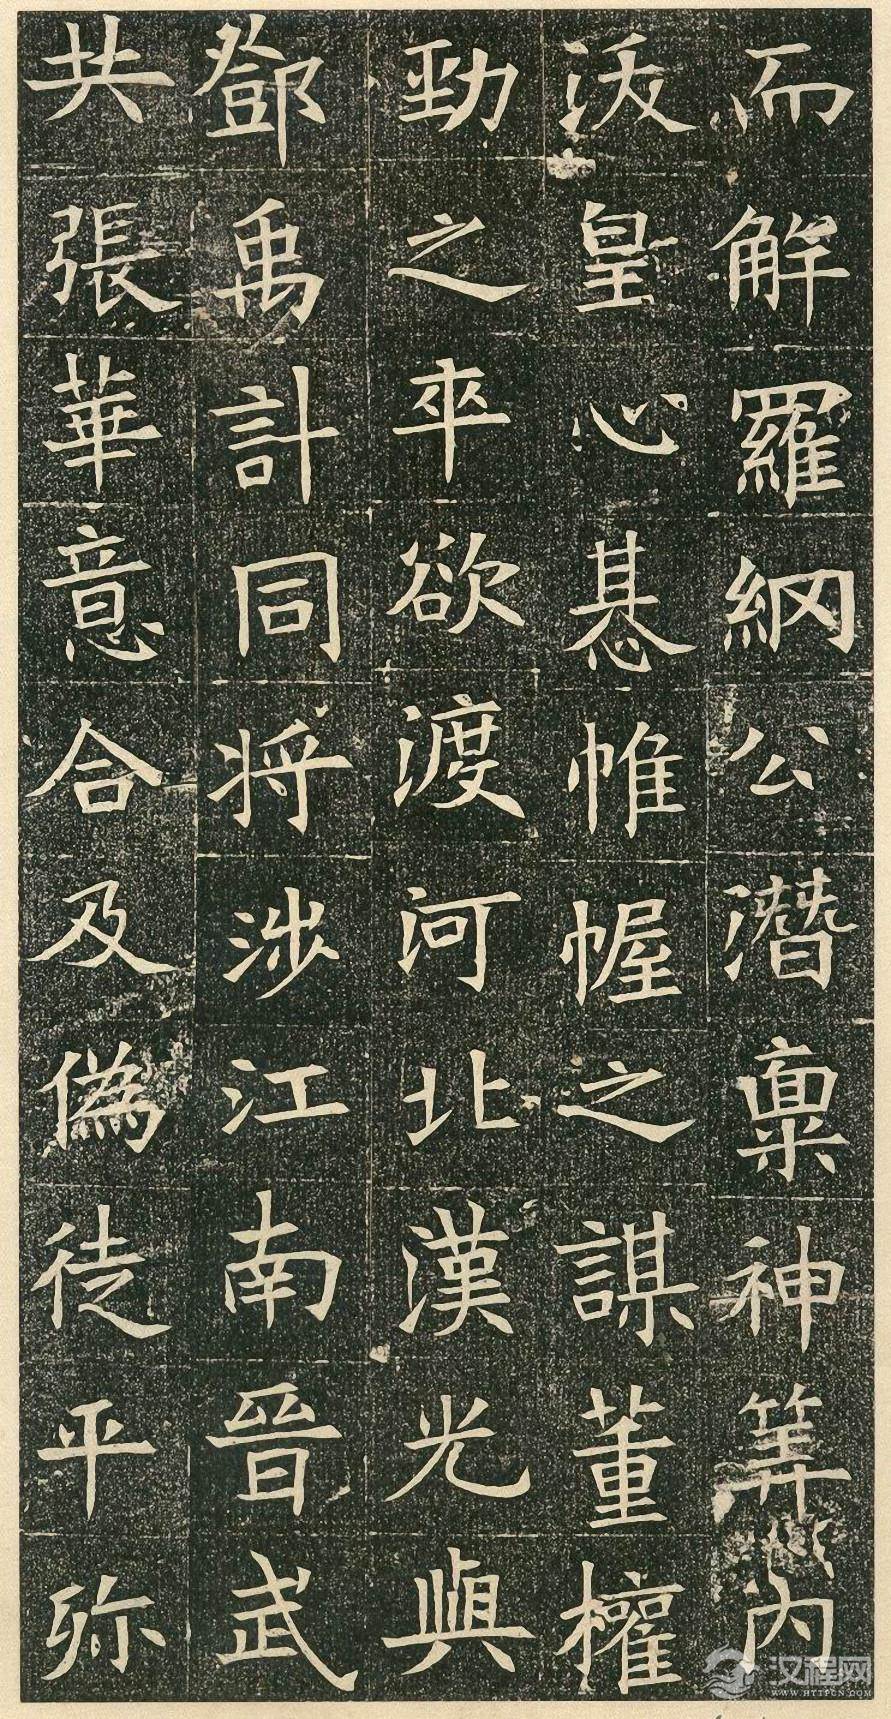 而解羅綱公潛稟神筭內
沃皇心惎帷幄之謀董權
勁之卒欲渡河北漢光與
鄧禹計同將涉江南晉武
共張華意合及偽徒平殄
汉程网
WWW.HTTPCN.COM